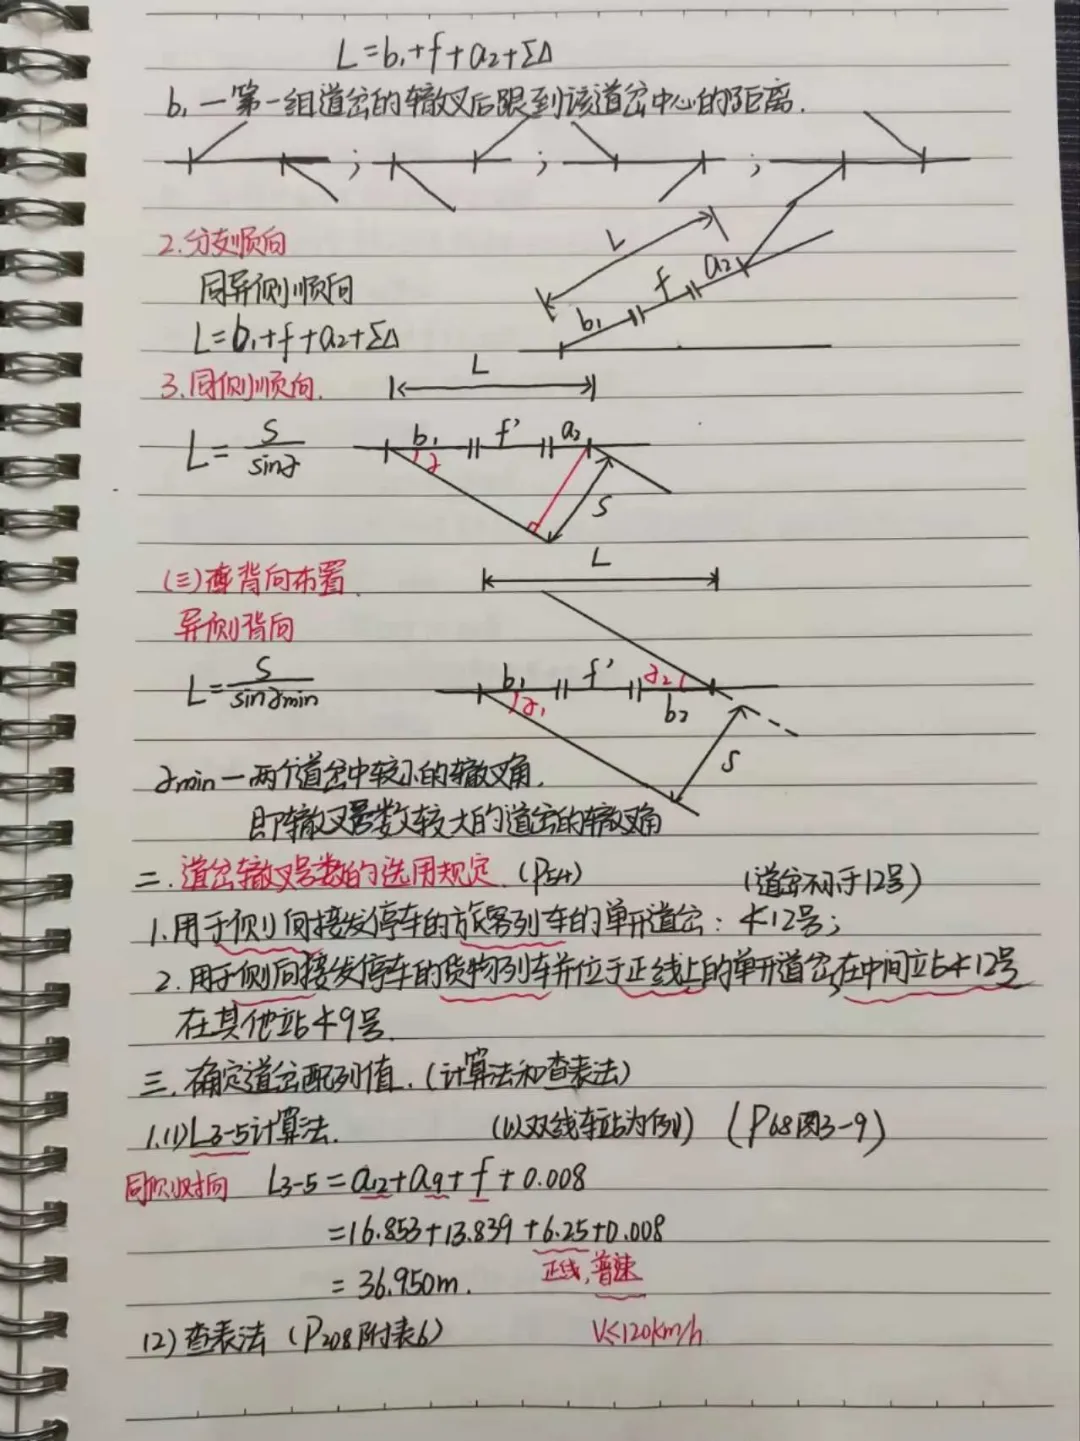 L=b₁+f+a₂+ΣΔ
b₁—第一组道岔的辙叉后跟到该道岔中心的距离.
; ; ;
2.分支顺向
L
同异侧顺向
b₁ f a₂
L=b₁+f+a₂+ΣΔ
3.同侧顺向.
L
L=S/sinα
b₁ f' a₂
α
S
(三)背向布置
L
异侧背向
L=S/sinαmin
b₁ f' α₂
α₁ b₂
S
αmin—两个道岔中较小的辙叉角.
即辙叉号数较大的道岔的辙叉角
二.道岔辙叉号数的选用规定.(P54) (道岔不小于12号)
1.用于侧向接发停车的旅客列车的单开道岔:≮12号;
2.用于侧向接发停车的货物列车并位于正线上的单开道岔,在中间站≮12号
在其他站≮9号.
三.确定道岔配列值.(计算法和查表法)
1.(1)L3-5计算法. (以双线车站为例) (P68图3-9)
同侧对向 L3-5=a12+a9+f+0.008
=16.853+13.839+6.25+0.008
=36.950m. 正线,普速
(2)查表法(P208附表6) V≤120km/h